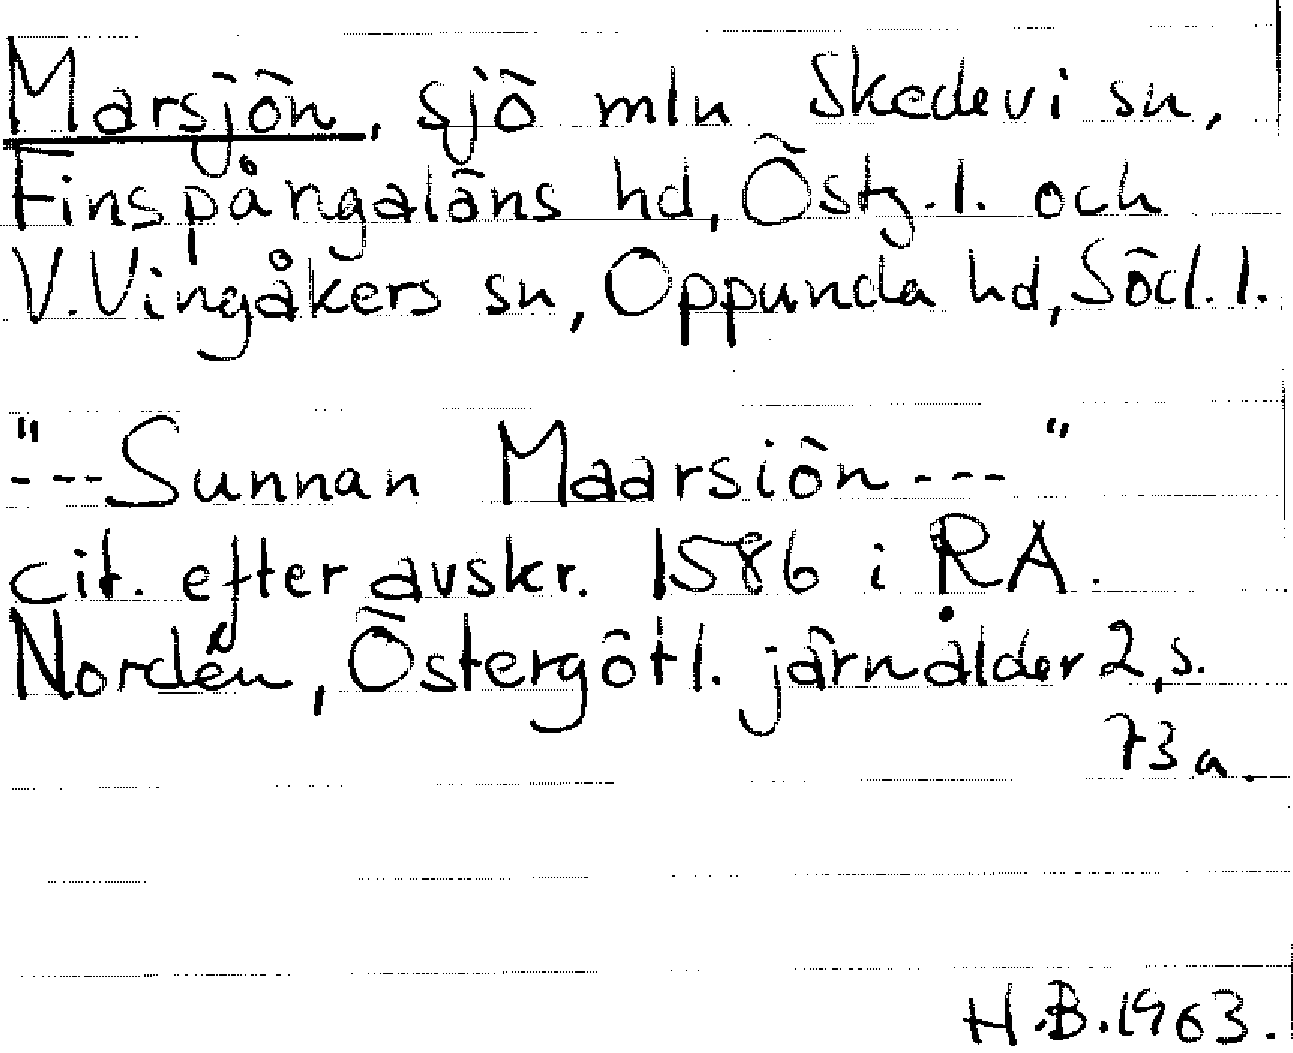 Marsjön, sjö mln Skedevi sn,
Finspångaläns hd, Östg.l. och
V.Vingåkers sn, Oppunda hd, Södl.l.
"---Sunnan Maarsiön---"
cit. efter avskr. 1586 i RA.
Nordén, Östergötl. järnålder 2, s.
73 a.
H.B.1963.